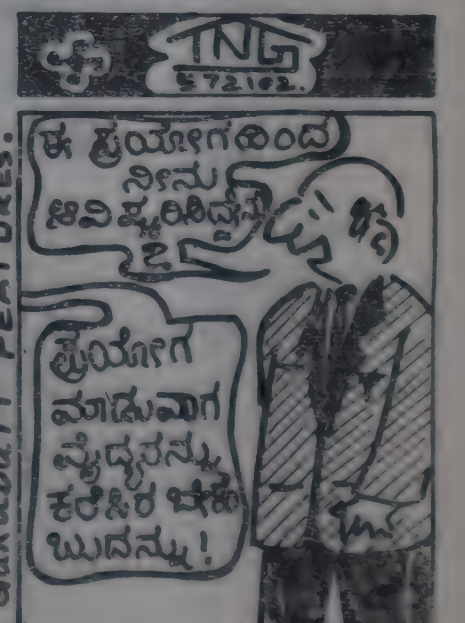 TNG
572102.
ಈ ಪ್ರಯೋಗದಿಂದ
ನೀನು
ಆವಿಷ್ಕರಿಸಿದ್ದೇನು
?
ಪ್ರಯೋಗ
ಮಾಡುವಾಗ
ವೈದ್ಯನನ್ನು
ಕರೆಸಿರ ಬೇಕೆಂ
ಬುದನ್ನು!
FEATURES.